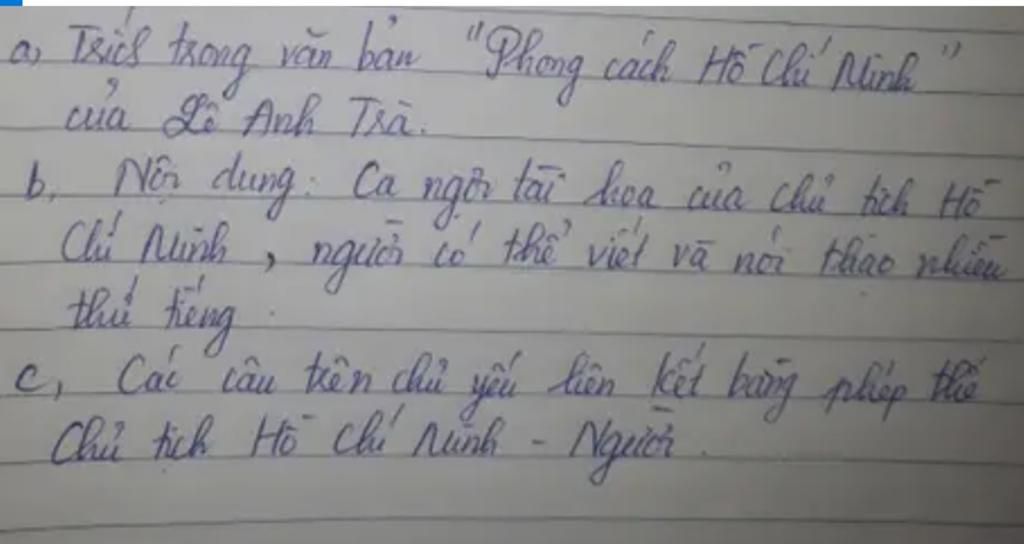 a, Trích trong văn bản "Phong cách Hồ Chí Minh"
của Lê Anh Trà.
b, Nội dung: Ca ngợi tài hoa của chủ tịch Hồ
Chí Minh, người có thể viết và nói thạo nhiều
thứ tiếng.
c, Các câu trên chủ yếu liên kết bằng phép thế
Chủ tịch Hồ Chí Minh - Người.